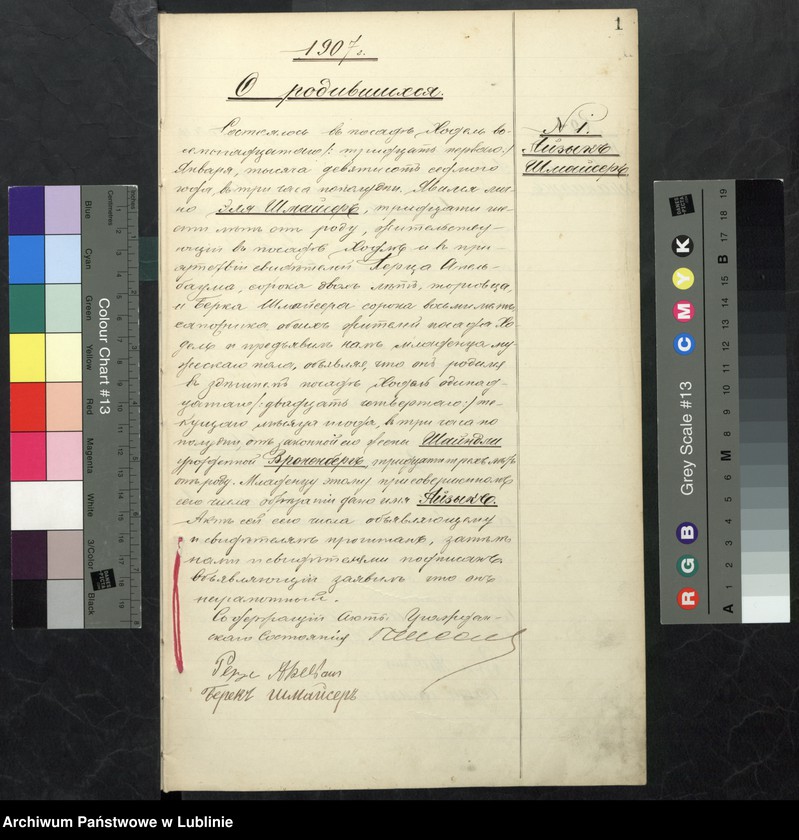 1
1907 г.
О родившихся.
N 1.
Айзыкъ
Шмайсеръ
Состоялось въ посадѣ Ходель во-
семнадцатаго /: тридцать перваго :/
Января, тысяча девятьсотъ седьмого
года, въ три часа пополудни. Явился лич-
но Эля Шмайсеръ, тридцати ше-
сти лѣтъ отъ роду, жительству-
ющій въ посадѣ Ходель и въ при-
сутствіи свидѣтелей Герца Апель-
баума, сорока двухъ лѣтъ, торговца,
и Берка Шмайсера сорока восьми лѣтъ
сапожника обоихъ жителей посада Хо-
дель и предъявилъ намъ младенца му-
жескаго пола, объявляя, что онъ родился
въ здѣшнемъ посадѣ Ходель одинад-
цатаго /: двадцать четвертаго :/ те-
кущаго мѣсяца и года, въ три часа по
полудни, отъ законной его жены Шайндли
урожденной тридцати трехъ лѣтъ
отъ роду. Младенцу этому при совершенномъ
сего числа обрѣзаніи дано имя Айзыкъ.
Актъ сей сего числа объявляющему
и свидѣтелямъ прочитанъ, затѣмъ
нами и свидѣтелями подписанъ
объявляющій заявилъ что онъ
неграмотный.
Содержащій Акты Граждан-
скаго Состоянія
Берекъ Шмайсеръ
Colour Chart #13
Centimetres
Inches
Blue
Cyan
Green
Yellow
Red
Magenta
White
3/Color
Black
Grey Scale #13
R G B
C M Y K
A 1 2 3 4 5 6 M 8 9 10 11 12 13 14 15 B 17 18 19
Archiwum Państwowe w Lublinie